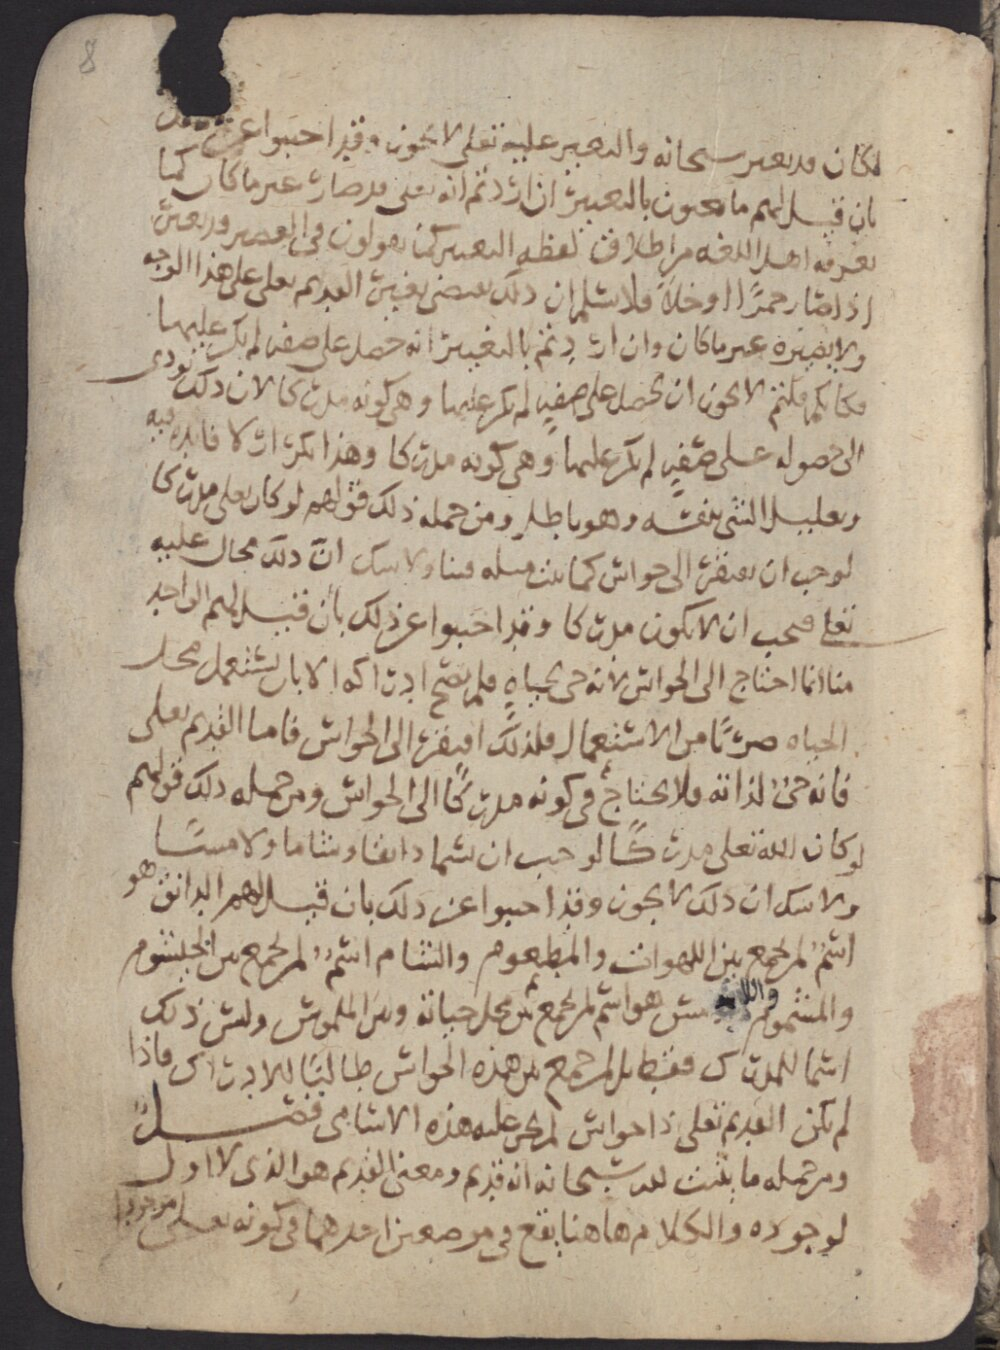 8
لكان قد تغير سبحانه والتغير عليه تعلى لا يجوز وقد احيبوا عن
بان قيل لهم ما تعنون بالتغيير ان اردتم انه تعلى قد صار غير ما كان كما
تعرفه اهل اللغه من اطلاق لفظه التغيير كما يقولون في العصير قد تغير
اذا صار خمرًا او خلًا فلا نسلم ان ذلك يقتضي تغيير القديم تعلى على هذا الوجه
ولا يصيره غير ما كان وان اردتم بالتغيير انه حصل على صفه لم يكن عليها
فكانكم قلتم لا يجوز ان يحصل على صفهٍ لم يكن عليها وهي كونه مدركا لان ذلك يودي
الى حصوله على صفهٍ لم يكن عليها وهي كونه مدركا وهذا تكرار لا فايده فيه
وتعليل الشي بنفسه وهو باطل ومن جمله ذلك قولهم لو كان تعلى مدركا
لوجب ان يفتقر الى حواس كما يثبت مثله فينا ولا شك انّ ذلك محال عليه
تعلى فيجب ان لا يكون مدركا وقد احيبوا عن ذلك بأن قيل لهم الواحد
منا انما احتاج الى الحواس لأنه حي بحياهٍ فلم يصح ادراكه الا بان يستعمل محل
الحياه ضربًا من الاستعمال فلذلك افتقر الى الحواس فاما القديم تعلى
فانه حيٌ لذاته فلا يحتاج في كونه مدركًا الى الحواس ومن جمله ذلك قولهم
لو كان الله تعلى مدركًا لوجب ان يسما ذايقا وشاما ولامسًا
ولا شك ان ذلك لا يجوز وقد احيبوا عن ذلك بان قيل لهم الذايق هو
اسمٌ لمن جمع بين اللهوات والمطعوم والشام اسمٌ لمن جمع بين الخيشوم
والمشموم واللامس هو اسم لمن جمع بين محل حياته وبين الملموس وليس ذلك
اسما للمدرك فقط بل لمن جمع بين هذه الحواس طالبًا للادراك فاذا
لم يكن القديم تعلى ذا حواس لم يجز عليه هذه الاسامي فصل
ومن جمله ما يثبت لله سبحانه انه قديم ومعنى القديم هو الذي لا اول
لوجوده والكلام هاهنا يقع في موضعين احدهما في كونه تعلى موجودا